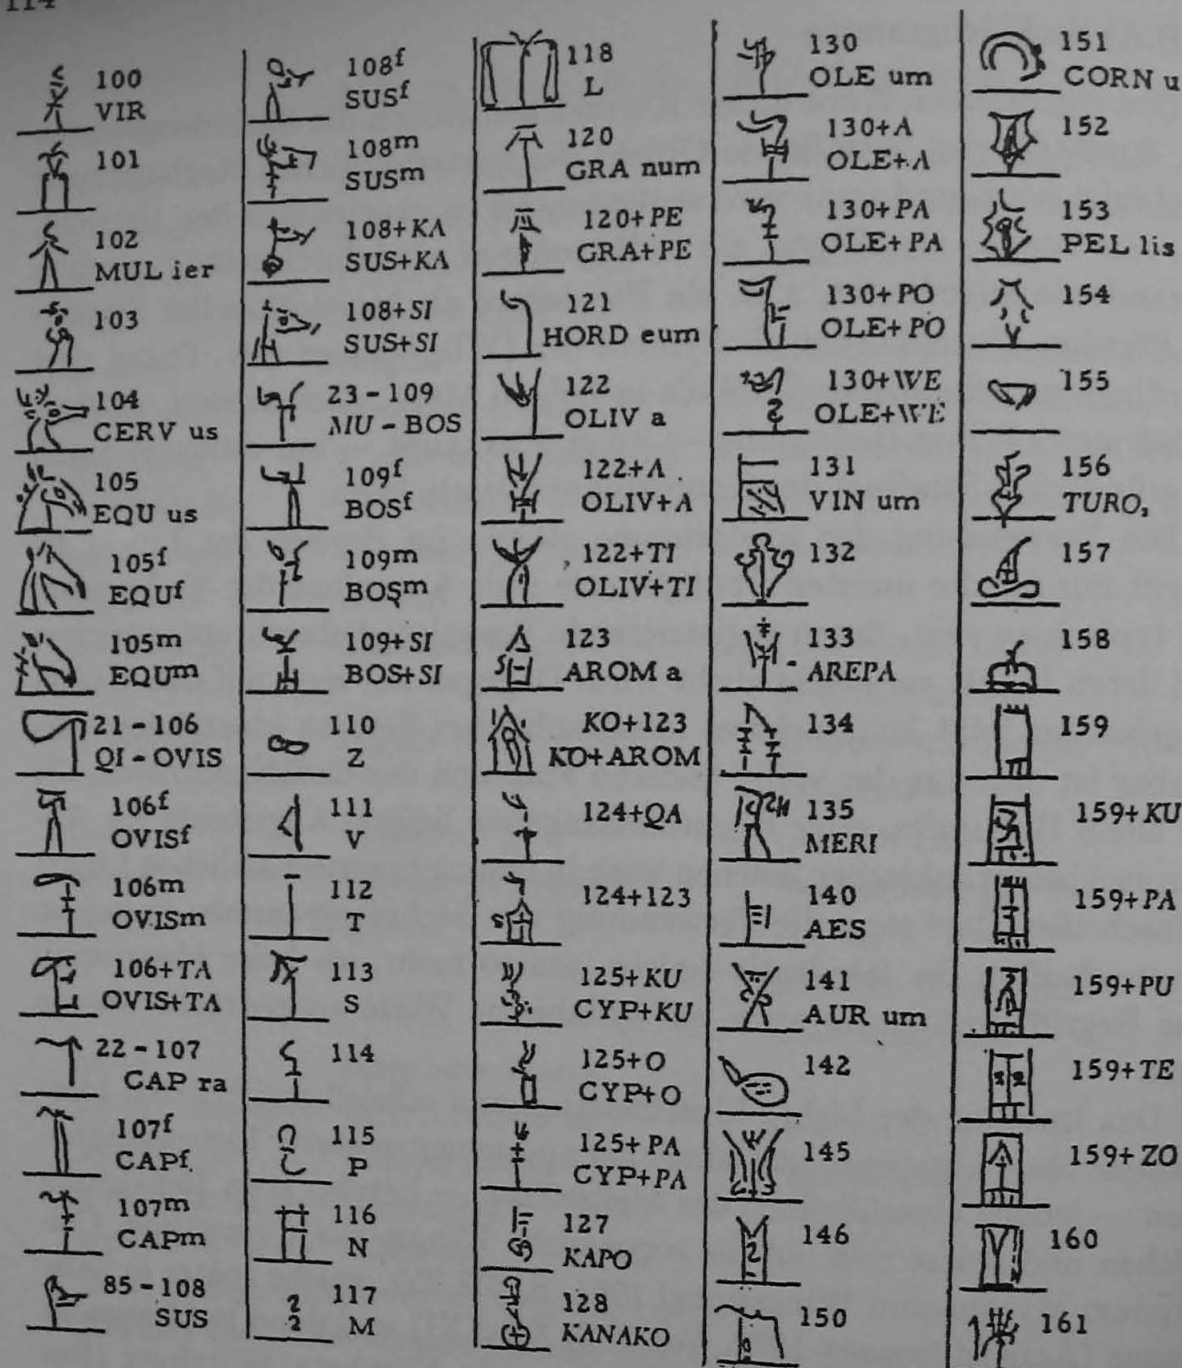 114
100
VIR
101
102
MUL ier
103
104
CERV us
105
EQU us
105f
EQUf
105m
EQUm
21-106
QI-OVIS
106f
OVISf
106m
OVISm
106+TA
OVIS+TA
22-107
CAP ra
107f
CAPf
107m
CAPm
85-108
SUS
108f
SUSf
108m
SUSm
108+KA
SUS+KA
108+SI
SUS+SI
23-109
MU-BOS
109f
BOSf
109m
BOSm
109+SI
BOS+SI
110
Z
111
V
112
T
113
S
114
115
P
116
N
117
M
118
L
120
GRA num
120+PE
GRA+PE
121
HORD eum
122
OLIV a
122+A
OLIV+A
122+TI
OLIV+TI
123
AROM a
KO+123
KO+AROM
124+QA
124+123
125+KU
CYP+KU
125+O
CYP+O
125+PA
CYP+PA
127
KAPO
128
KANAKO
130
OLE um
130+A
OLE+A
130+PA
OLE+PA
130+PO
OLE+PO
130+WE
OLE+WE
131
VIN um
132
133
AREPA
134
135
MERI
140
AES
141
AUR um
142
145
146
150
151
CORN u
152
153
PEL lis
154
155
156
TURO₂
157
158
159
159+KU
159+PA
159+PU
159+TE
159+ZO
160
161